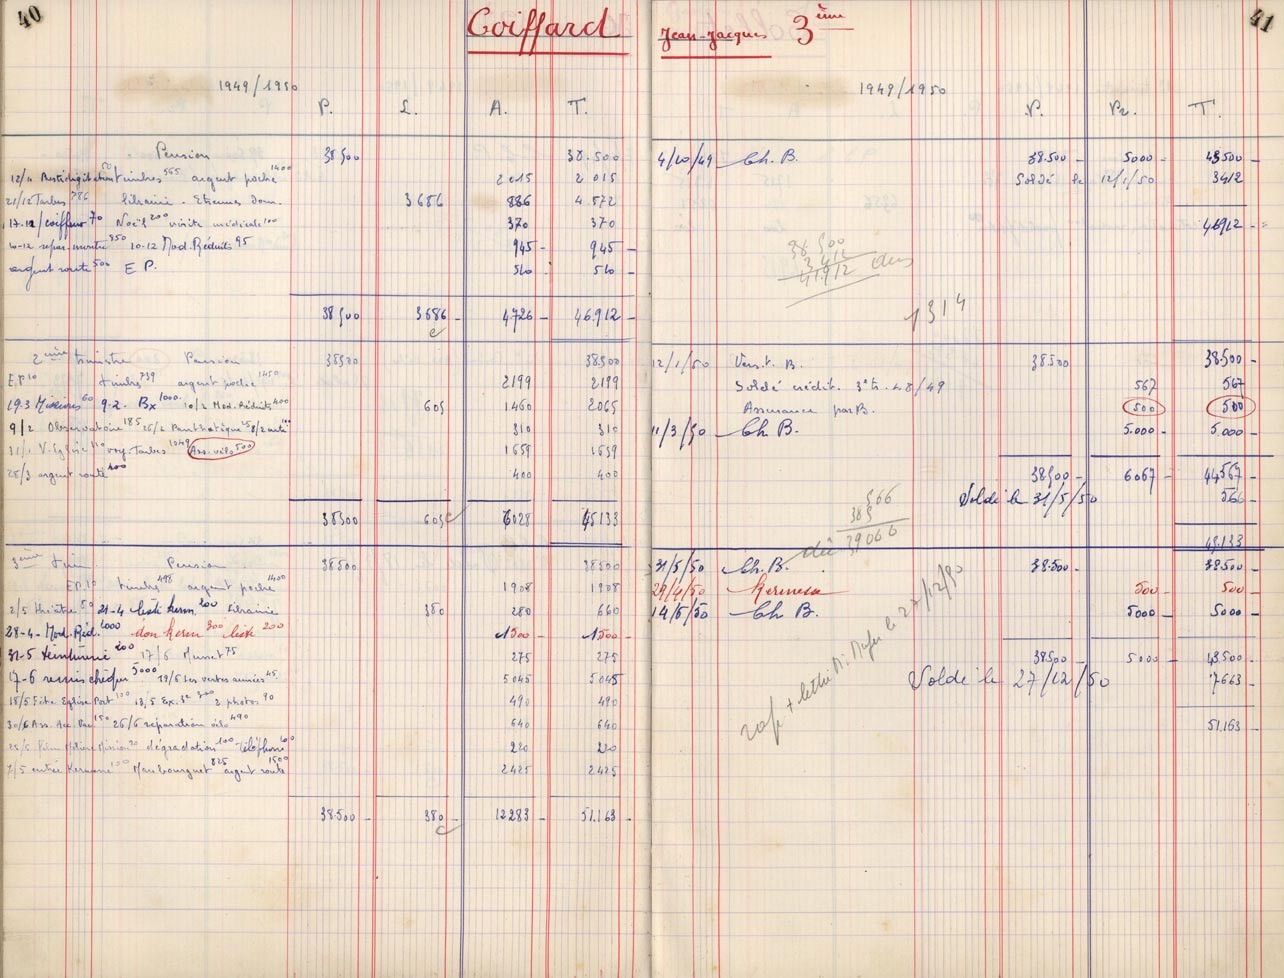 40
Coiffard
1949/1950
P. L. A. T.
Pension 38500 38.500
12/11 Prestidigitation 50 timbres 565 argent poche 1400 2015 2 015
21/12 Tarbes 786 librairie - Etrennes dom. 3686 886 4.572
17-12/coiffeur 70 Noël 200 visite médicale 100 370 370
10-12 répar. montre 850 10-12 Mod. Réduits 95 945 - 945 -
argent route 500 E P. 510 - 510 -
38 500 3686 - 4726 - 46.912 -
2ème trimestre Pension 38500 38500
E.P. 10 timbres 739 argent poche 1450 2199 2199
19.3 Missions 60 9-2. Bx 1000 10/2 Mod. Réduits 400 605 1460 2065
9/2 Observatoire 185 25/2 310 310
31/1 V. Eglise 110 voy. Tarbes 1049 Ass. vélo 500 1659 1659
28/3 argent route 400 400 400
38500 605 6028 45133
3ème trim. Pension 38500 38500
E.P. 10 timbres 498 argent poche 1400 1908 1908
2/5 théâtre 80 21-4 200 librairie 380 280 660
28-4- Mod. Réd. 1000 don kerm 300 200 1500 - 1500 -
31-5 teinturerie 200 17/6 Musset 75 275 275
17-6 remis chèque 5000 19/6 Les vertes années 45 5045 5045
18/5 Fête Eglise Port 100 13/5 Ex. 300 2 photos 90 490 490
30/6 Ass. Ac. Bac 150 26/6 réparation vélo 490 640 640
25/6 Film Mission 20 dégradation 100 téléphone 220 220
7/5 entrée Kermesse 100 Maubourguet 825 argent route 1500 2425 2425
38.500 - 380 - 12283 - 51.163 -
Jean-Jacques 3ème
41
1949/1950
V. Pr. T.
4/10/49 Ch. B. 38.500 - 5000 - 43500 -
Soldé le 12/1/50 3412
46912 -
38 500
3 412
41.912 dus
1314
12/1/50 Vers. t. B. 38.500 38.500 -
Soldé crédit. 3e tr. 48/49 567 567
Assurance par B. 500 500
11/3/50 Ch. B. 5.000 - 5.000 -
38500 - 6067 - 44567 -
Soldé le 31/5/50 566 -
45.133
566
385
39066
dû
31/5/50 Ch. B. 38.500 - 38.500 -
29/4/50 Kermesse 500 - 500 -
14/6/50 Ch B. 5000 - 5000 -
38500 - 5000 - 43.500 -
Soldé le 27/12/50 7663 -
51.163 -
rap + lettre M. le 27/12/50